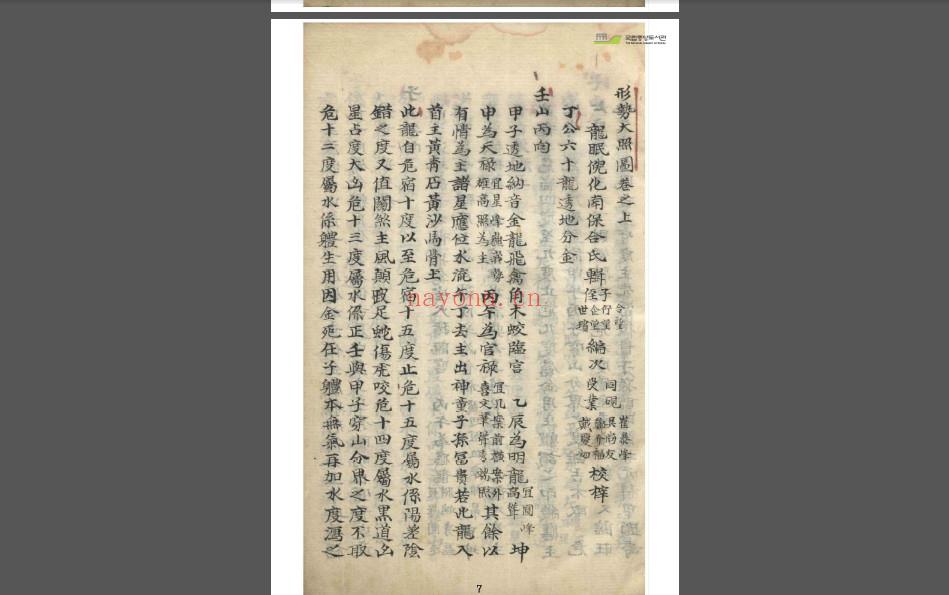 形勢大照圖卷之上
龍眠倪化南保台氏輯 子 行瑩 侄 企瑩 世瑨 編次 同硯 受業 校梓
丁公六十龍透地分金
壬山丙向
甲子透地納音金龍飛禽角木蛟臨官 乙辰為明龍 宜圓峰高聳 坤
申為天祿 宜星峰 雄高照為主 丙午為官祿 宜几案前橫案外 喜文筆聳秀 照 其餘以
有情為主諸星應位水流午丁去主出神童子孫富貴若此龍入
首主黃青石黃沙馬骨土
此龍自危宿十度以至危宿十五度止危十五度屬水係陽差陰
錯之度又值關煞主風顛跛足蛇傷虎咬危十四度屬水黑道凶
星占度大凶危十三度屬水係正壬與甲子穿山分界之度不取
危十二度屬水係軆生用因金死在子軆本無氣再加水度瀉之
nayona.cn
국립중앙도서관
THE NATIONAL LIBRARY OF KOREA
7